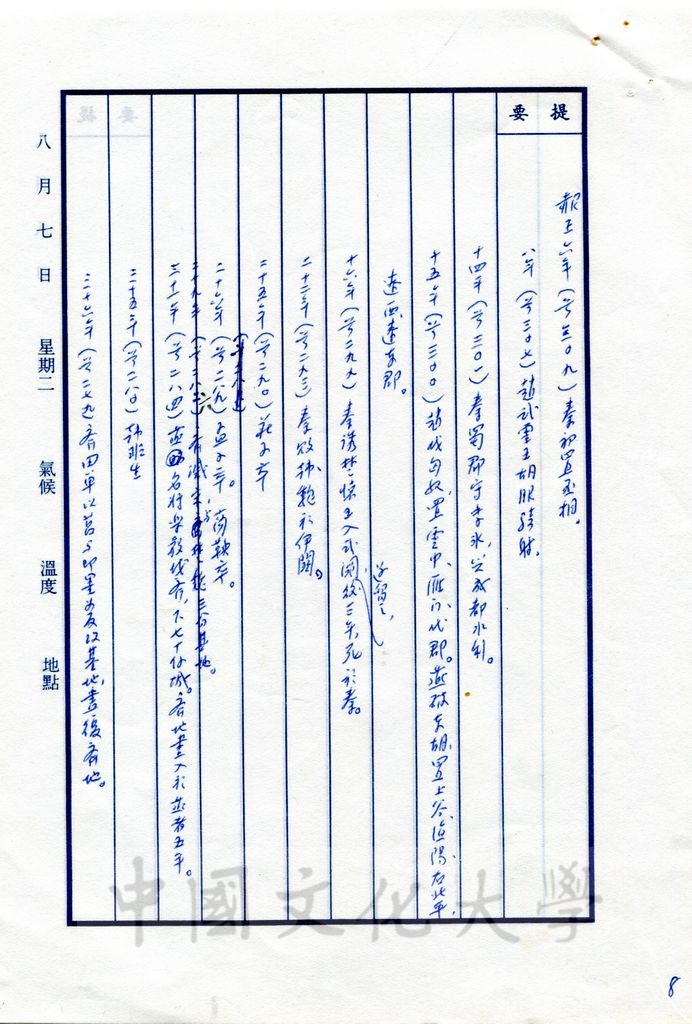 提要
赧王六年（前三〇九）秦初置丞相。
八年（前三〇七）趙武靈王胡服騎射。
十四年（前三〇一）秦蜀郡守李冰，興成都水利。
十五年（前三〇〇）趙伐匈奴，置雲中、雁門、代郡。燕破東胡，置上谷、漁陽、右北平、
遼西、遼東郡。
十六年（前二九九）秦誘楚懷王入武關，留之，後三年，死於秦。
二十二年（前二九三）秦敗韓魏於伊闕。
二十五年（前二九〇）莊子卒
二十六年（前二八九）孟子卒。商鞅卒。
二十九年（前二八六）齊滅宋，與楚魏三分其地。
三十一年（前二八四）燕名將樂毅伐齊，下七十餘城。齊地盡入於燕者五年。
三十五年（前二八〇）韓非生
三十六年（前二七九）齊田單以莒與即墨為反攻基地，盡復齊地。
八月七日 星期二 氣候 溫度 地點
中國文化大學
8